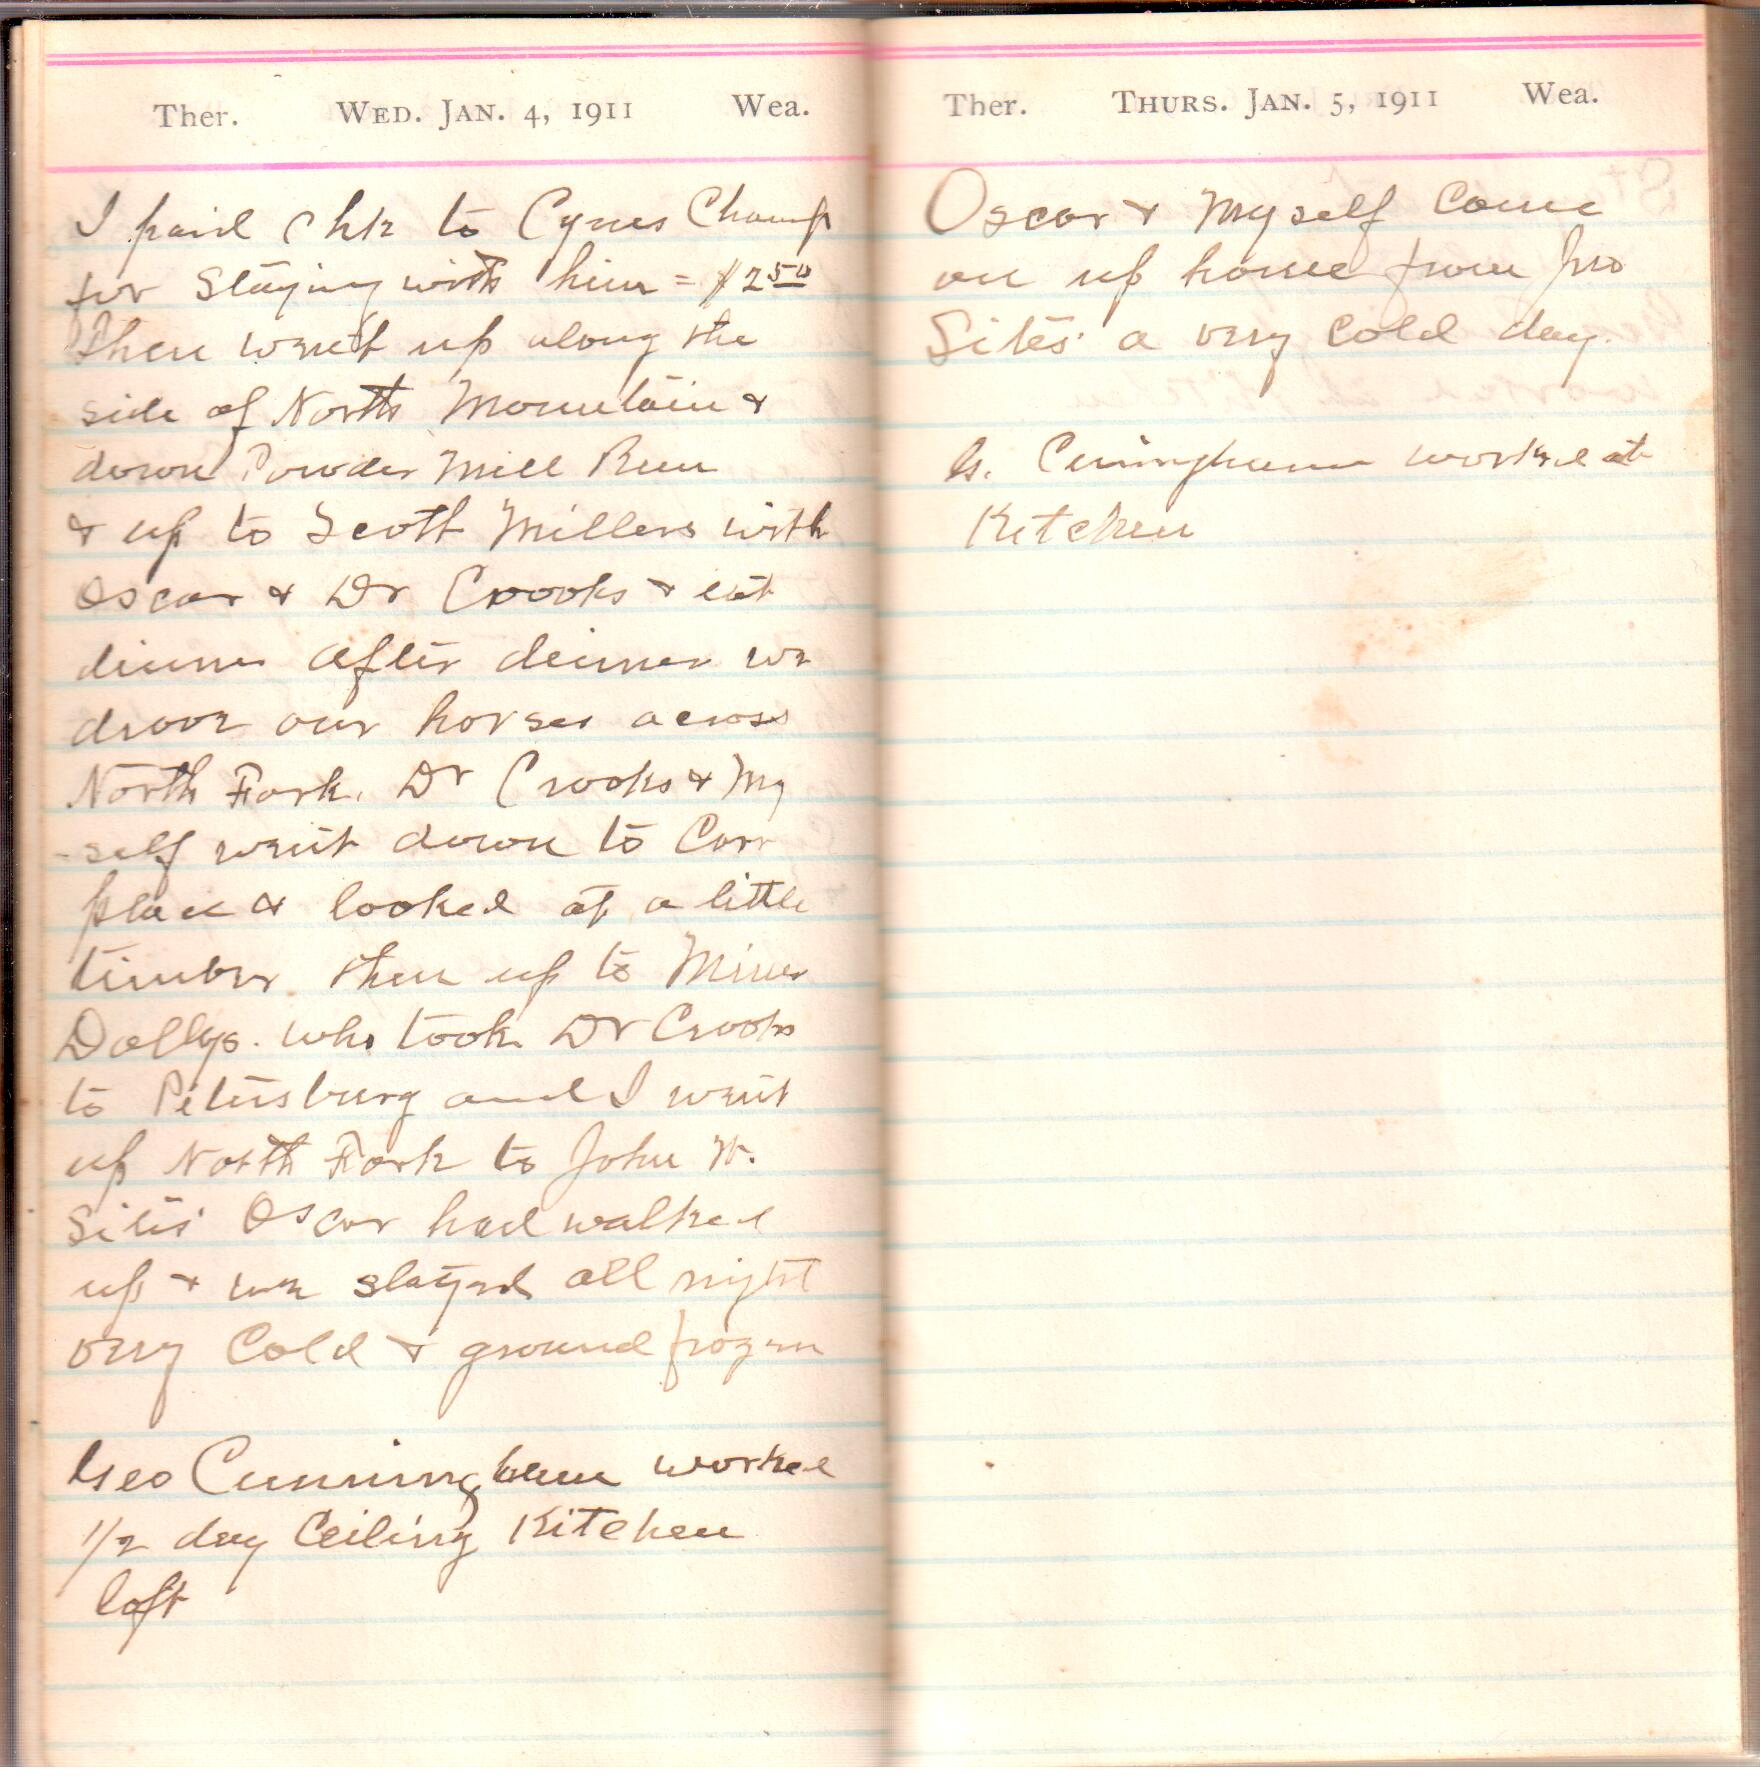 Ther. WED. JAN. 4, 1911 Wea.
I paid chk to Cyrus Champ
for Staying with him = $2 50
Then went up along the
side of North Mountain &
down Powder Mill Run
& up to Scott Millers with
Oscar & Dr Crooks & eat
dinner After dinner we
drove our horses across
North Fork. Dr Crooks & My
-self went down to Carr
place & looked at a little
timber then up to Miner
Dollys. who took Dr Crooks
to Petersburg and I went
up North Fork to John W.
Sites' Oscar had walked
up & we stayed all night
very Cold & ground frozen
Geo Cunningham worked
1/2 day Ceiling Kitchen
loft
Ther. THURS. JAN. 5, 1911 Wea.
Oscar & Myself Come
on up home from Jno
Sites' a very Cold day.
G. Cuningham worked at
Kitchen